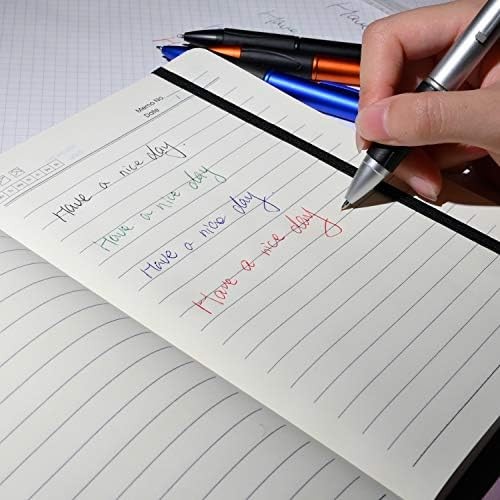 Memo No.
Date
Have a nice day.
Have a nice day
Have a nice day
Have a nice day
Have